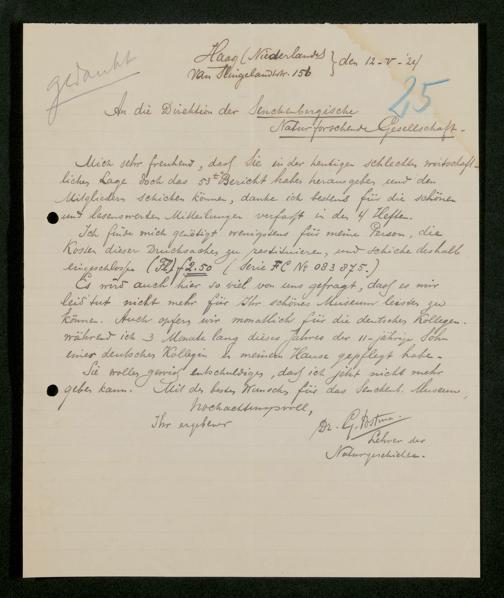 gedankt
Haag (Niederlande) } den 12-V-'24
van Slingelandtstr. 156
25
An die Direktion der Senckenbergische
Naturforschende Gesellschaft.
Mich sehr freuhend, dasz Sie in der heutigen schlechten wirtschaft-
lichen Lage doch das 53te Bericht haben herausgeben und den
Mitgliedern schicken können, danke ich bestens für die schönen
und lesenswerten Mitteilungen verfaszt in den 4 Heften.
Ich finde mich genötigt wenigstens für meine Person, die
Kosten dieser Drucksachen zu restituieren, und schicke deshalb
eingeschlossen (Fl) f 2.50 (Serie FC No 083875.)
Es wird auch hier so viel von uns gefragt, dasz es mir
leid tut nicht mehr für Ihr schönes Museum leisten zu
können. Auch opfern wir monatlich für die deutschen Kollegen.
während ich 3 Monate lang dieses Jahres der 11-jährige Sohn
einer deutschen Kollegen in meinem Hause gepflegt habe.
Sie wollen gewisz entschuldigen, dasz ich jetzt nicht mehr
geben kann. Mit den besten Wunsch für das Senckenb. Museum,
Hochachtungsvoll,
Ihr ergebener
Dr. G. Postma.
Lehrer der
Naturgeschichte.